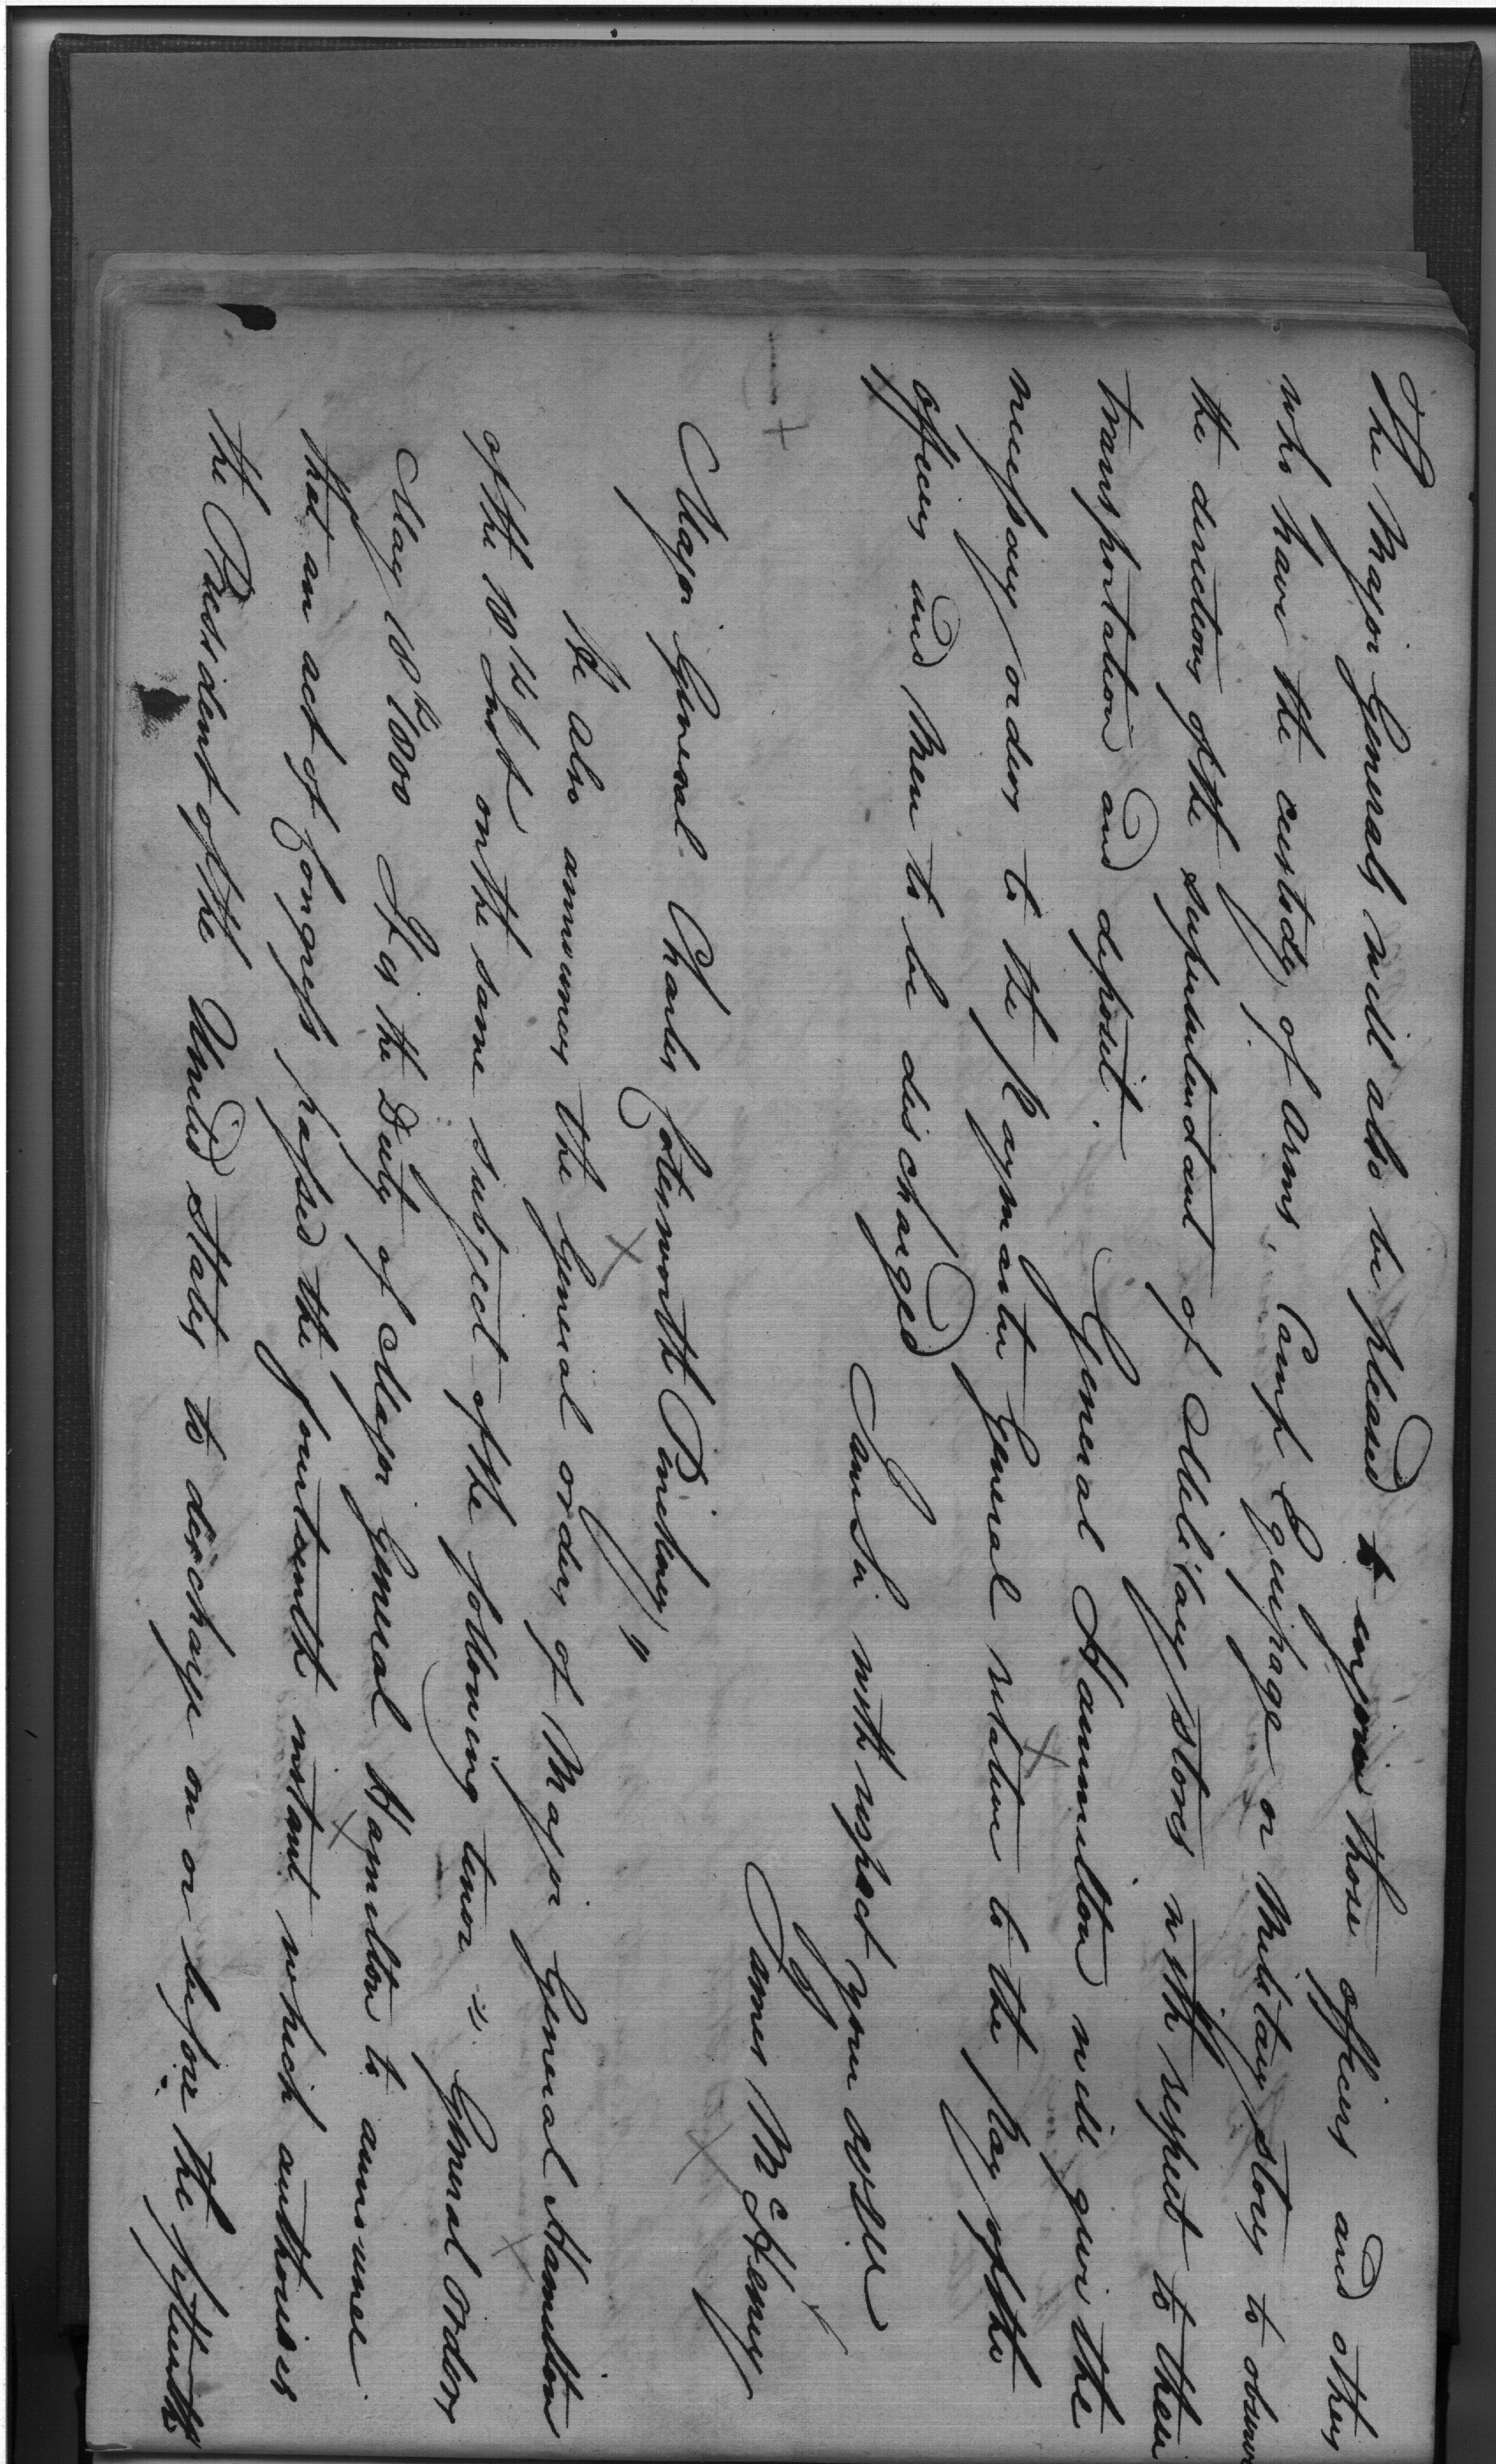 The Major Generals will also be pleased to enjoin those officers and others
who have the custody of arms, Camp Equipage or Military stores to observe
the directions of the superintendant of Military stores with respect to their
transportation and deposit. General Hammilton will give the
necessary orders to the Paymaster General relative to the pay of the
officers and men to be discharged
I am Sir with respect your obst
James McHenry
Major General Charles Cotesworth Pinckney"
He also announces the General orders of Major General Hamilton
of the 18th Inst on the same subject of the following tenor "General Orders
May 18th 1800 It is the Duty of Major General Hamilton to announce
that an act of Congress passed the fourteenth instant which authorises
the President of the United States to discharge on or before the fifteenth